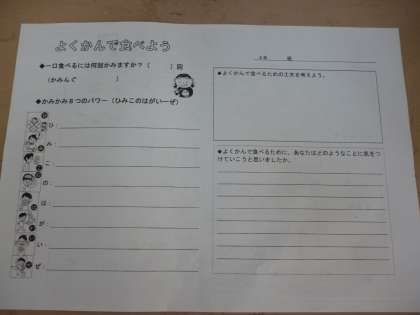 よくかんで食べよう
◆一口食べるには何回かみますか?( )回
(かみんぐ )
◆かみかみ8つのパワー(ひみこのはがいーぜ)
ひ
み
こ
の
は
が
い
ぜ
◆よくかんで食べるための工夫を考えよう。
◆よくかんで食べるために、あなたはどのようなことに気をつ
けていこうと思いましたか。